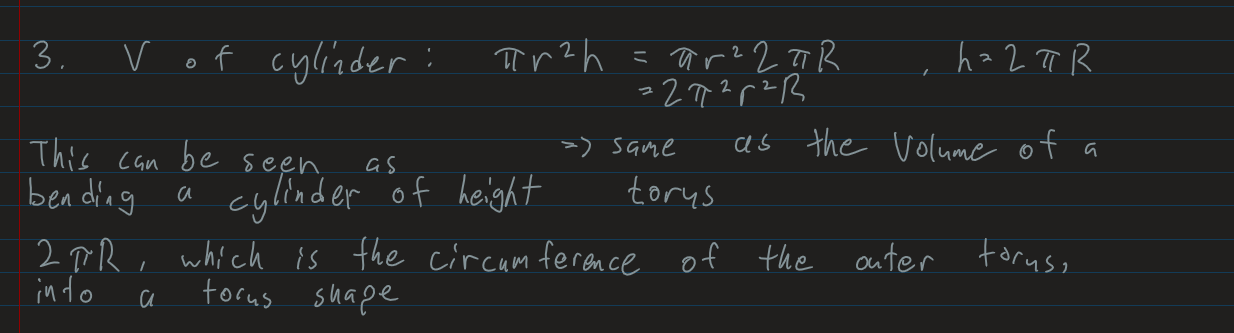 3. V of cylinder: πr²h = πr²2πR , h=2πR
=2π²r²R
=> same as the Volume of a
torus
This can be seen as
bending a cylinder of height
2πR, which is the circumference of the outer torus,
into a torus shape